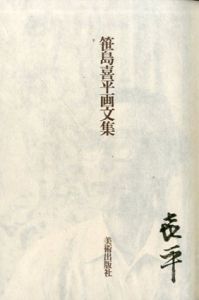 笹島喜平画文集
喜平
美術出版社